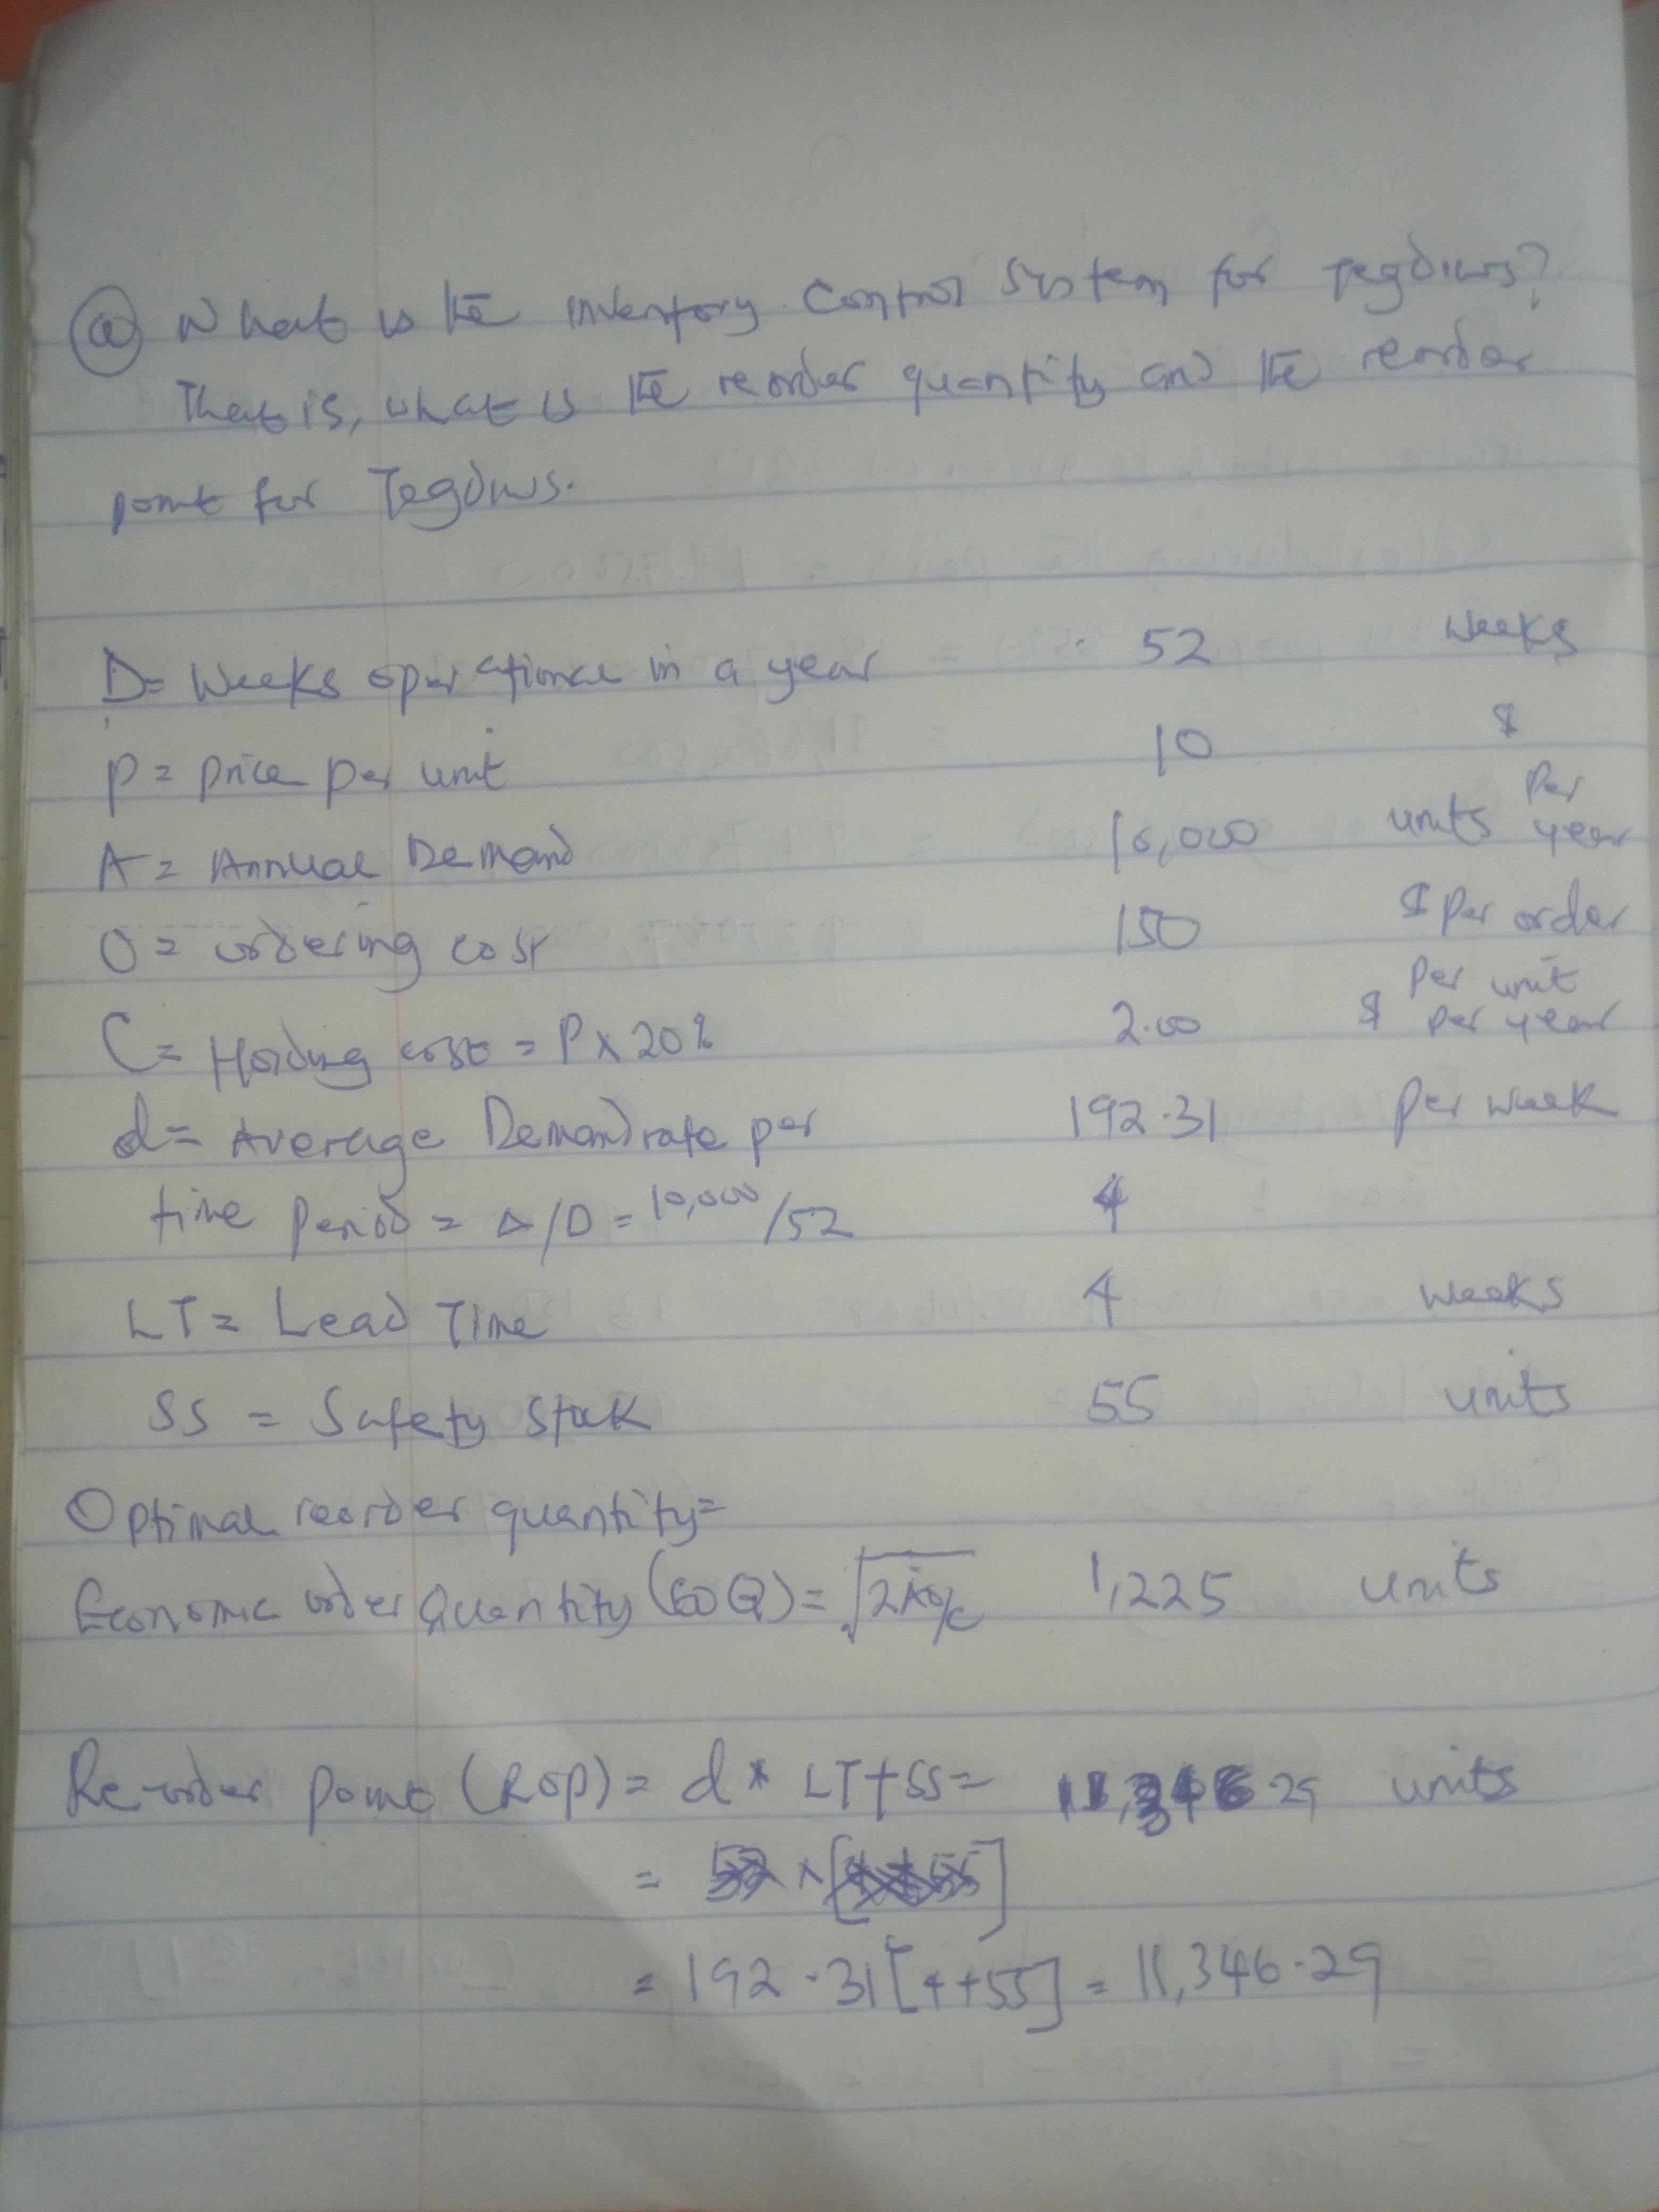 (a) What is the inventory control system for Tegdiws?
That is, what is the reorder quantity and the reorder
point for Tegdiws.
D= Weeks operational in a year 52 weeks
P = price per unit 10 $
A = Annual Demand 10,000 units per year
O = ordering cost 150 $ per order
C = Holding cost = P x 20% 2.00 $ per unit per year
d = Average Demand rate per 192.31 per week
time period = A/D = 10,000/52 4
LT = Lead Time 4 weeks
SS = Safety Stock 55 units
Optimal reorder quantity=
Economic order Quantity (EOQ) = √2AO/C 1,225 units
Re-order point (ROP) = d * LT + SS = 11,346.29 units
=
= 192.31[4+55] = 11,346.29